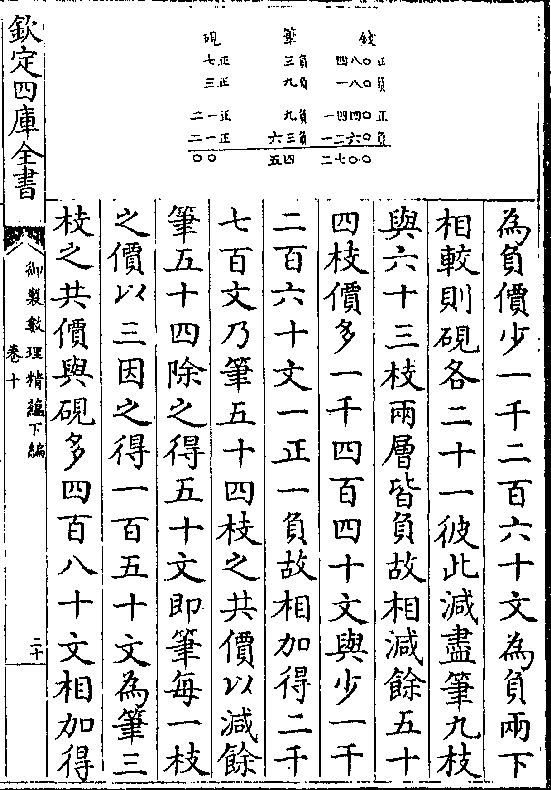 硯 筆 錢
七正 三負 四八〇正
三正 九負 一八〇負
二一正 九負 一四四〇正
二一正 六三負 一二六〇負
〇〇 五四 二七〇〇
為負價少一千二百六十文為負兩下
相較則硯各二十一彼此減盡筆九枝
與六十三枝兩層皆負故相減餘五十
四枝價多一千四百四十文與少一千
二百六十文一正一負故相加得二千
七百文乃筆五十四枝之共價以減餘
筆五十四除之得五十文即筆每一枝
之價以三因之得一百五十文為筆三
枝之共價與硯多四百八十文相加得
欽定四庫全書
御製數理精蘊下編
卷十
二十